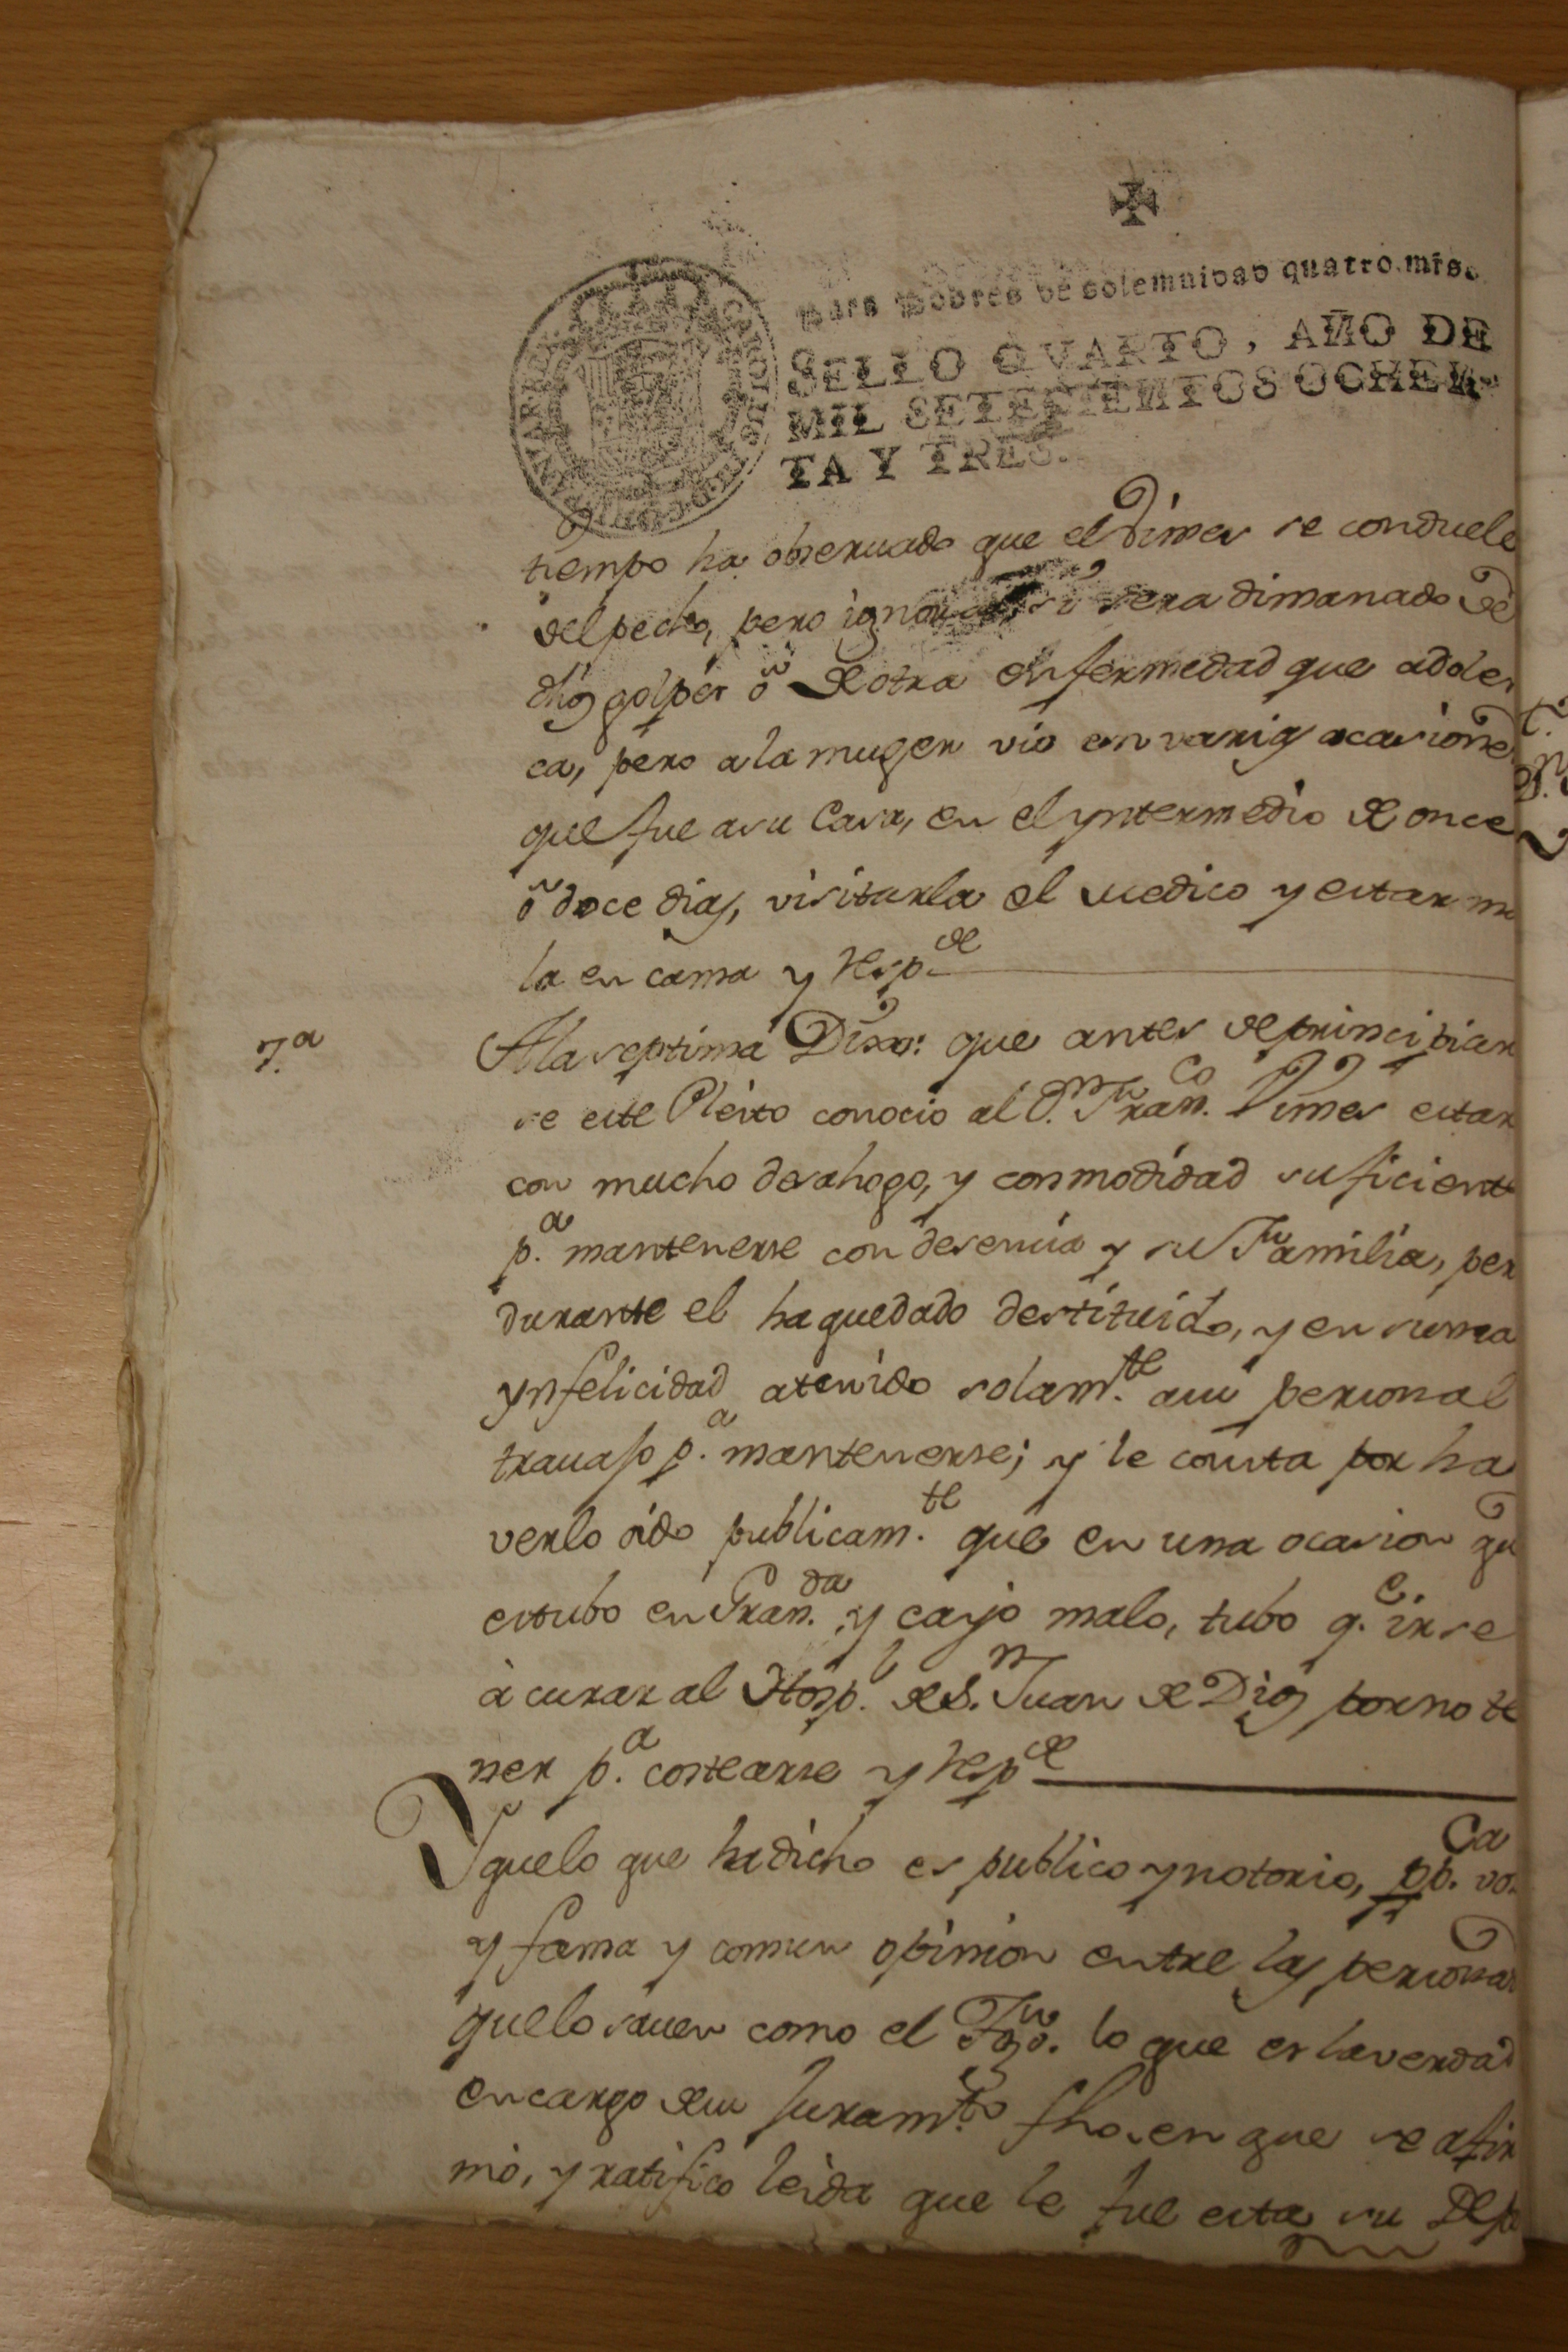 Para Pobres de solemnidad quatro mrs.
SELLO QVARTO, AÑO DE
MIL SETECIENTOS OCHEN-
TA Y TRES.
tiempo ha obseruado que el Dimes se conduele
del pecho, pero ignora si sera dimanado de
dhos golpes ô de otra enfermedad que adoles
ca, pero a la muger vio en varias ocasiones
que fue a su Casa, en el yntermedio de once
ô doce dias, visitarla el medico y estar ma
la en cama y resp.de
7.a
A la septima Dixo: que antes de principiar
se este Pleito conocio al D.n Fran.co Dimes estar
con mucho desahogo, y conmodidad suficiente
p.a mantenerse con desencia y su Familia, per
durante el ha quedado destituido, y en suma
ynfelicidad atenido solam.te a su personal
trauajo p.a mantenerse; y le consta por ha
verlo oido publicam.te que en una ocasion qu
estubo en Gran.da y cayo malo, tubo q.e irse
à curar al Hosp.l de S.n Juan de Dios por no te
ner p.a costearse y resp.de
Y que lo que ha dicho es publico y notorio, pp.ca vo
y fama y comun opinion entre las personas
que lo sauen como el Tgo. lo que es la verdad
en cargo de su juram.to fho. en que se afir
mò, y ratifico leida que le fue esta su Depo